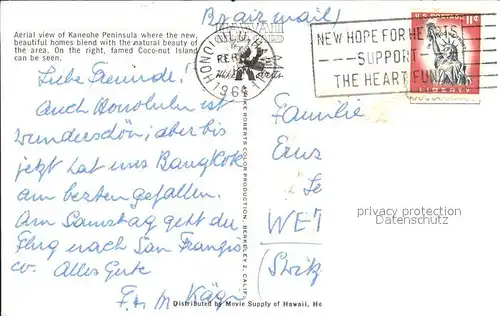 Aerial view of Kaneohe Peninsula where the new,
beautiful homes blend with the natural beauty of
the area. On the right, famed Coco-nut Island
can be seen.
By air mail
HONOLULU, HAWAII
FEB
1962
NEW HOPE FOR HEARTS
SUPPORT
THE HEART FUND
U.S. POSTAGE 11¢
LIBERTY
Liebe Freunde!
Auch Honolulu ist
wunderschön, aber bis
jetzt hat uns Bangkok
am besten gefallen.
Am Samstag geht der
Flug nach San Franzis
co. Alles Gute
F. + M. Kägi
MIKE ROBERTS COLOR PRODUCTION, BERKELEY 2, CALIF
Distributed by Movie Supply of Hawaii, Ho
Familie
WET
(Switz
privacy protection
[SAMMLER.COM]